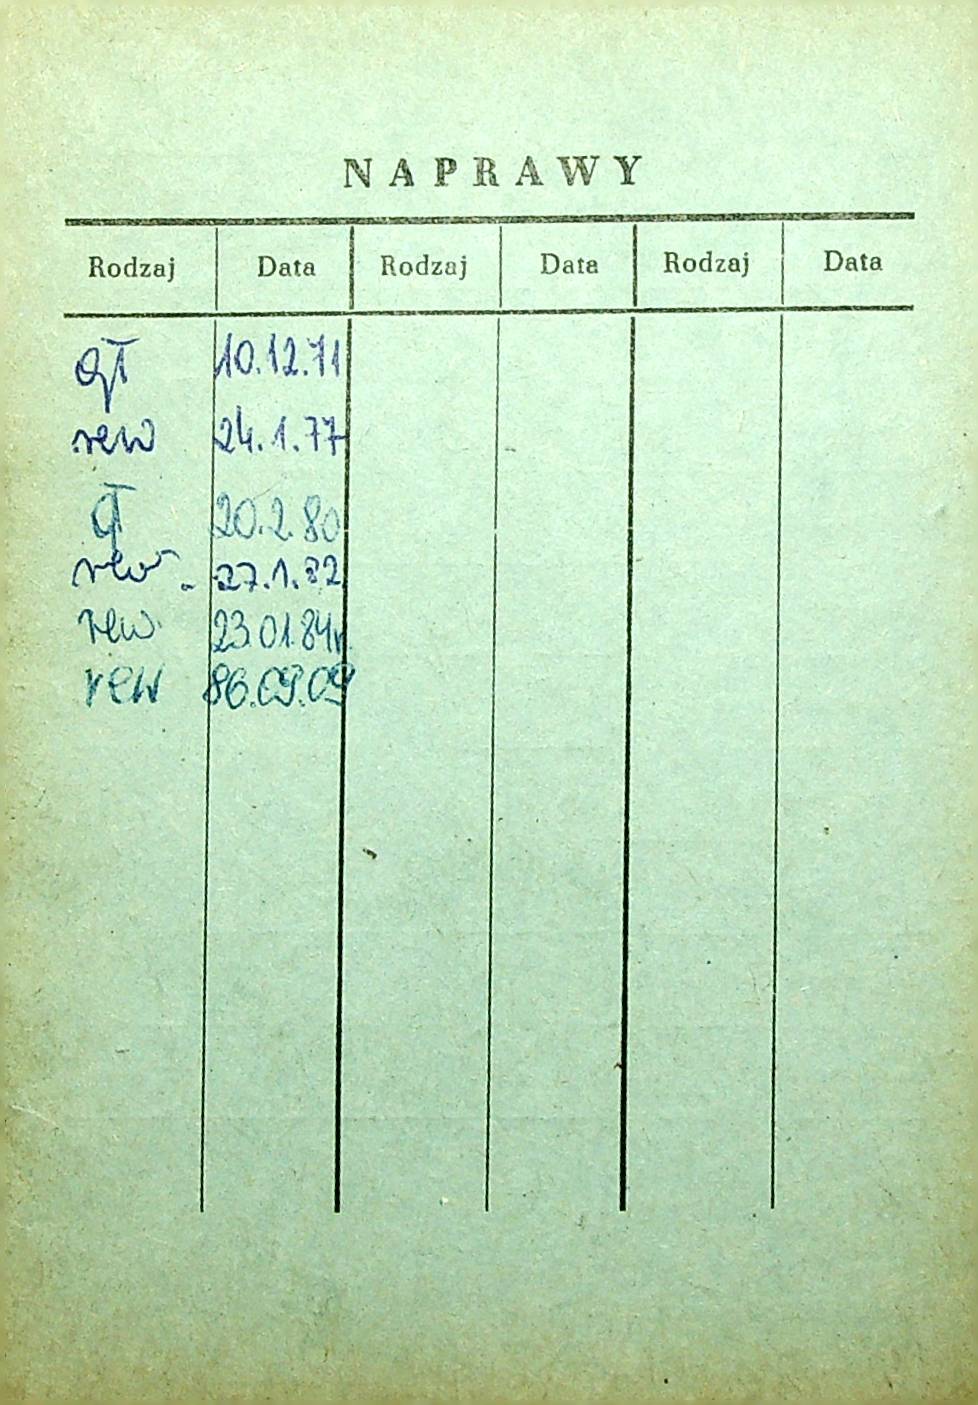 NAPRAWY
Rodzaj Data Rodzaj Data Rodzaj Data
gł 10.12.71
rew 24.1.77
gł 20.2.80
rew. 27.1.82
rew. 23.01.84r.
rew 86.09.09